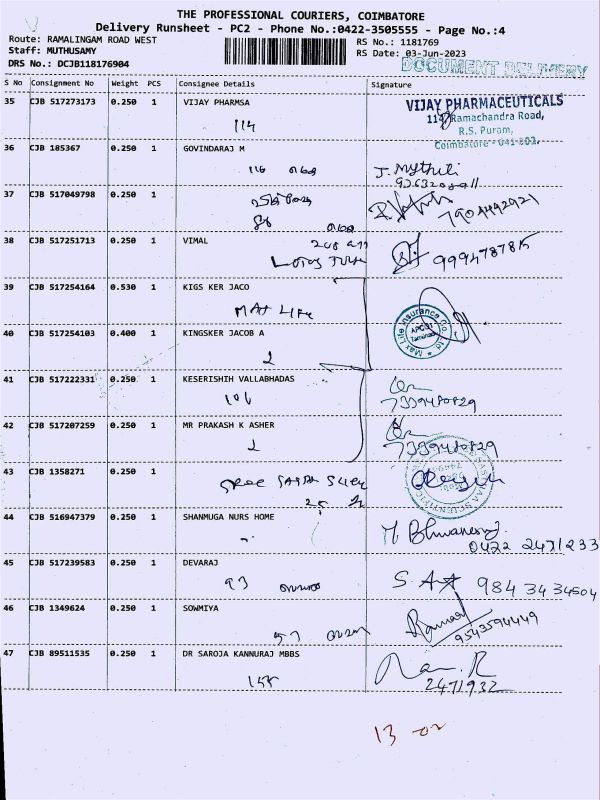 THE PROFESSIONAL COURIERS, COIMBATORE
Delivery Runsheet - PC2 - Phone No.:0422-3505555 - Page No.:4
Route: RAMALINGAM ROAD WEST
RS No.: 1181769
Staff: MUTHUSAMY
RS Date: 03-Jun-2023
DRS No.: DCJB118176904
DOCUMENT DELIVERY
S No Consignment No Weight PCS Consignee Details Signature
35 CJB 517273173 0.250 1 VIJAY PHARMSA
VIJAY PHARMACEUTICALS
114 Ramachandra Road,
R.S. Puram,
114
36 CJB 185367 0.250 1 GOVINDARAJ M
116
J. Mythili
37 CJB 517049798 0.250 1
7904492921
38 CJB 517251713 0.250 1 VIMAL
39 CJB 517254164 0.530 1 KIGS KER JACO
MAX LIFE
Max Life Insurance Co. Ltd
40 CJB 517254103 0.400 1 KINGSKER JACOB A
2
41 CJB 517222331 0.250 1 KESERISHIH VALLABHADAS
106
7339480829
42 CJB 517207259 0.250 1 MR PRAKASH K ASHER
2
7339480829
43 CJB 1358271 0.250 1
44 CJB 516947379 0.250 1 SHANMUGA NURS HOME
0422 2471233
45 CJB 517239583 0.250 1 DEVARAJ
93
984 3434504
46 CJB 1349624 0.250 1 SOWMIYA
57
9543594449
47 CJB 89511535 0.250 1 DR SAROJA KANNURAJ MBBS
2471932
13